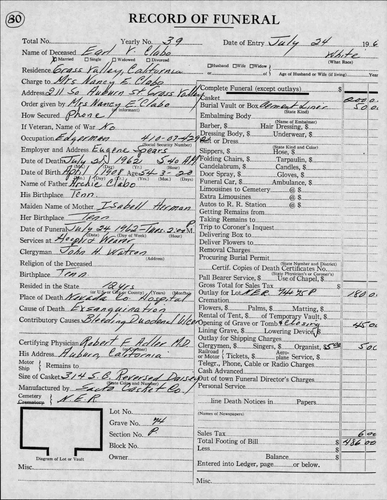 80
RECORD OF FUNERAL
Total No. Yearly No. 39 Date of Entry July 24 196
Name of Deceased Earl V. Clabo White
Married Single Widowed Divorced (What Race)
Residence Grass Valley, California Husband Wife Widow or Age of Husband or Wife (if living) Years
Charge to Mrs Nancy E. Clabo Complete Funeral (except outlays) $
Address 211 So Auburn St Grass Valley Casket
Order given by Mrs Nancy E. Clabo Burial Vault or Box Cement Liner 50 00
How Secured Phone (State Kind)
(If Insured) Embalming Body
If Veteran, Name of War No (Name of Embalmer)
Barber, $ Hair Dressing, $
Occupation Edgerman (Social Security Number) Dressing Body, $ Underwear, $
Employer and Address Eugene Spears Suit or Dress
(State Kind and Color)
Date of Death July 21 1962 5:40 AM Slippers, $ Hose, $
Folding Chairs, $ Tarpaulin, $
Date of Birth April 1908 Age 54-3-20 Candelabrum, $ Candles, $
Door Spray, $ Gloves, $
Name of Father Archie Clabo Funeral Car, $ Ambulance, $
His Birthplace Tenn Limousines to Cemetery @ $
Extra Limousines @ $
Maiden Name of Mother Isabell Herman Autos to R. R. Station @ $
Her Birthplace Tenn Getting Remains from
Taking Remains to
Date of Funeral July 24 1962 Tues 2:00 P Trip to Coroner's Inquest
Services at Hooper Weaver Delivering Box to
Deliver Flowers to
Clergyman John H. Watson Removal Charges
Religion of the Deceased Procuring Burial Permit
Birthplace Tenn Certif. Copies of Death Certificate No.
Resided in the State 12 yrs Pall Bearer Service, $ Use of Chapel, $
Place of Death Nevada Co Hospital Gross Total for Sales Tax
Outlay for Lot NER 74 P 180 00
Cause of Death Exsanguination Cremation
Contributory Causes Bleeding Duodenal Ulcer Flowers, $ Palms, $ Matting, $
Rental of Tent, $ of Temporary Vault, $
Certifying Physician Robert F. Adler M.D. Opening of Grave or Tomb 45 00
His Address Auburn California Lining Grave, $ Lowering Device, $
Motor Ship Remains to Outlay for Shipping Charges
Clergymen, $ Singers, $ Organist, $ 5 00
Size of Casket 314 S.B. Reversed Railroad or Motor Tickets, $ Aeroplane Service, $
Manufactured by Casket Co. Telegr., Phone, Cable or Radio Charges
Cash Advanced
Cemetery Crematory N.E.R. Out of town Funeral Director's Charges
Personal Service
Lot No. line Death Notices in Papers
Grave No. 74 (Names of Newspapers)
Section No. P Sales Tax 6 00
Block No. Total Footing of Bill $ 486 00
Diagram of Lot or Vault Balance
Entered into Ledger, page or below.
Misc. Misc.